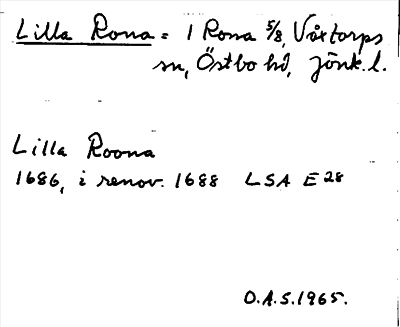 Lilla Rona = 1 Rona 5/8, Våxtorps
sn, Östbo hd, Jönk. l.
Lilla Roona
1686, i renov. 1688 LSA E28
O.A.S. 1965.